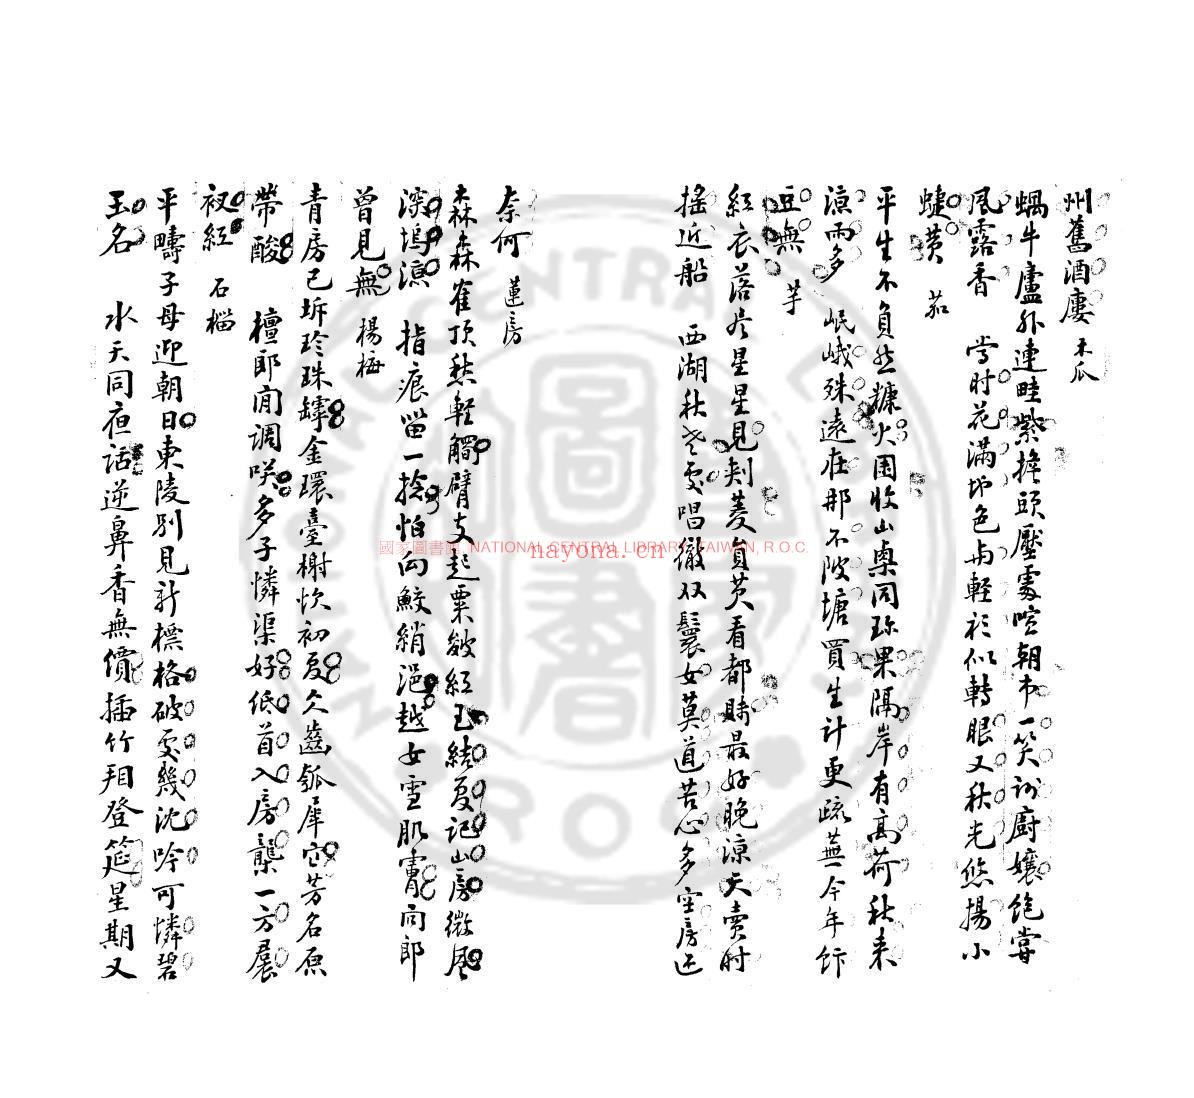 州舊酒廔 木瓜
蝸牛廬外連畦紫擔頭壓處喧朝市一笑謝廚孃飽嘗
風露香 當時花滿地色與輕衫似轉眼又秋光悠揚小
蜨黄 茄
平生不負然糠火園收山奧同珍果隔岸有高荷秋來
涼雨多 岷峨殊遠在那不陂塘買生計更疏蕪今年飰
豆無 芋
紅衣落盡星星見剥菱負芡看都賤最好晚涼天賣時
搖近船 西湖秋老處唱徹双鬟女莫道苦心多空房還
奈何 蓮房
森森雀頂愁輕觸臂支起粟皴紅玉結夏記山房微風
深塢涼 指痕留一捻怕向鮫綃浥越女雪肌膚問郎
曾見無 楊梅
青房已坼珍珠罅金環臺榭忺初夏久齒瓠犀它芳名原
帶酸 檀郎閒調咲多子憐渠好低首入房櫳一方展
衩紅 石榴
平疇子母迎朝日東陵別見新標格破處幾沈吟可憐碧
玉名 水天同夜話逆鼻香無價插竹耝登筵星期又
國家圖書館 NATIONAL CENTRAL LIBRARY, TAIWAN, R.O.C.
nayona.cn
NATIONAL CENTRAL LIBRARY
R.O.C.